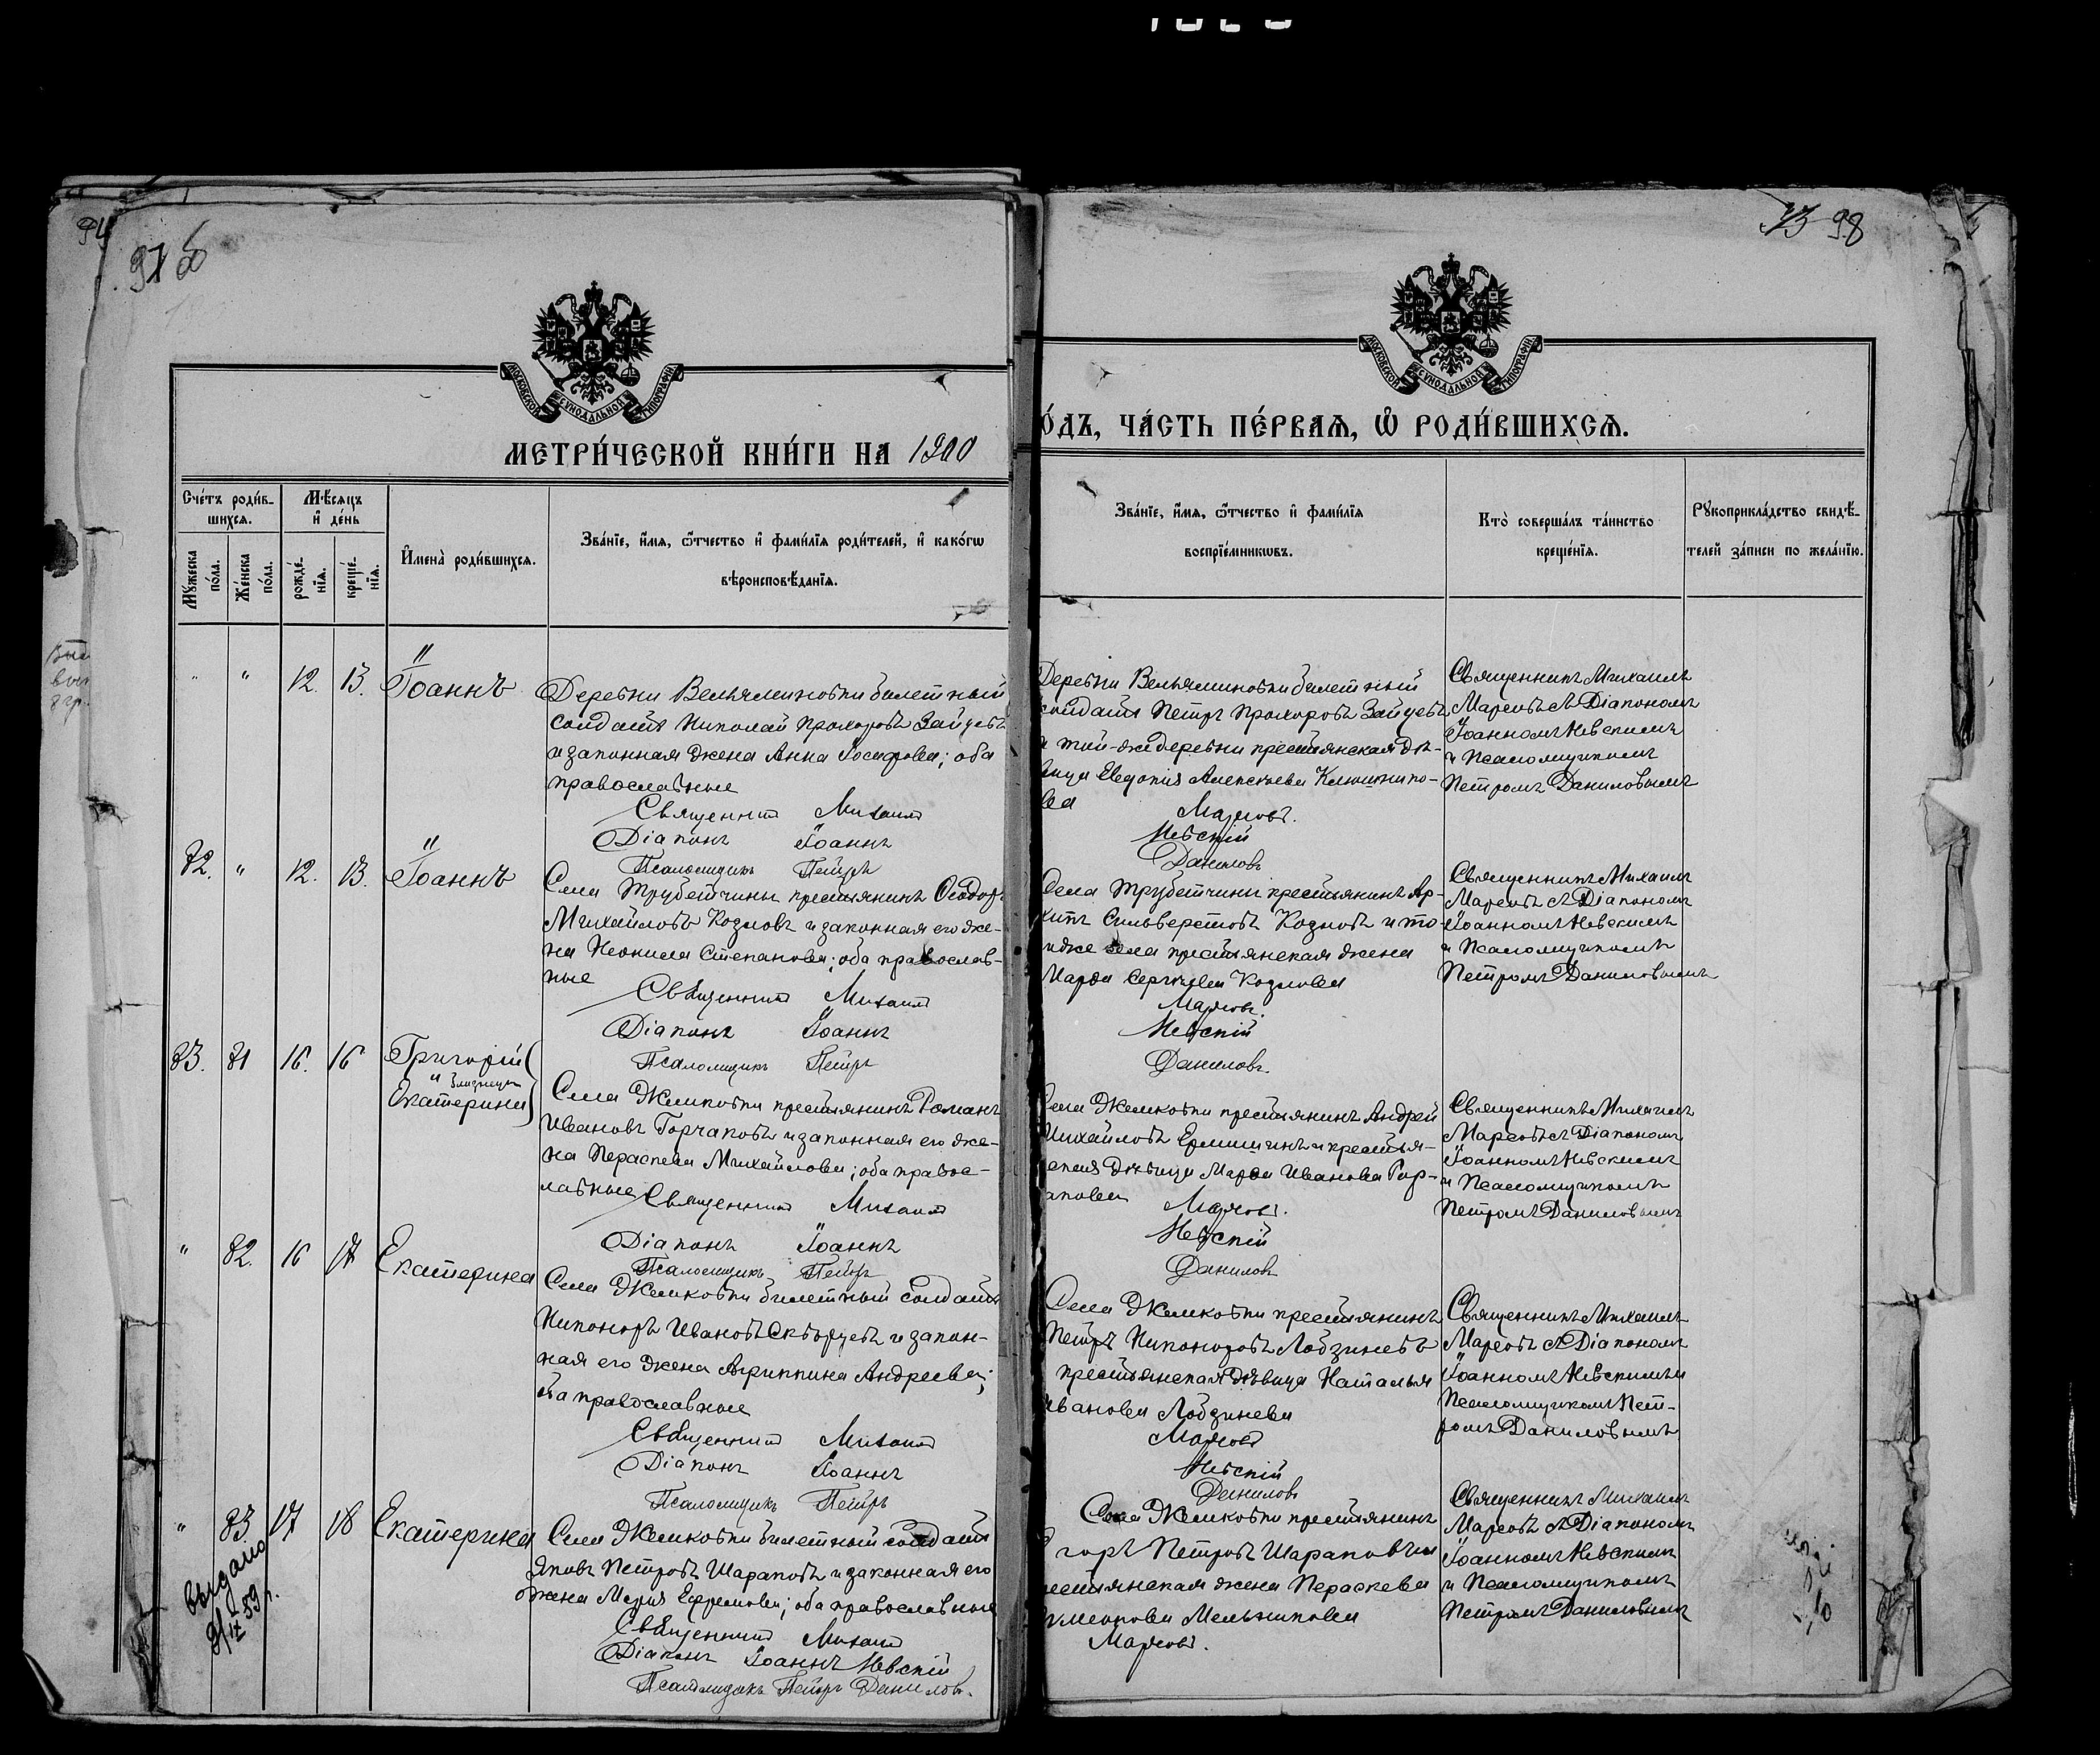 97 об
98
МОСКОВСКОЙ СУНОДАЛЬНОЙ ТИПОГРАФІИ
МОСКОВСКОЙ СУНОДАЛЬНОЙ ТИПОГРАФІИ
МЕТРИ́ЧЕСКОЙ КНИ́ГИ НА 1900
О́ДЪ, ЧА́СТЬ ПЕ́РВАѦ, Ѡ҆ РОДИ́ВШИХСѦ.
Сче́тъ роди́в-
шихсѧ.
Мѣ́сѧцъ
и҆ де́нь
Мꙋ́жеска
по́ла.
Же́нска
по́ла.
рожде́-
нїѧ.
креще́-
нїѧ.
И҆мена̀ роди́вшихсѧ.
Зва́нїе, и҆́мѧ, ѻ҆́тчество и҆ фами́лїѧ роди́телей, и҆ како́гѡ
вѣроисповѣ́данїѧ.
Зва́нїе, и҆́мѧ, ѻ҆́тчество и҆ фами́лїѧ
воспрїе́мникѡвъ.
Кто̀ соверша́лъ та́инство
креще́нїѧ.
Рꙋкоприкла́дство свидѣ́-
телей за́писи по жела́нїю.
" " 12. 13. Іоаннъ
Деревни Вельяминовки билетный
солдатъ Николай Прохоровъ Зайцевъ
и законная жена Анна Іосифова; оба
православные
Священникъ Михаилъ
Діаконъ Іоаннъ
Псаломщикъ Петръ
Деревни Вельяминовки билетный
солдатъ Петръ Прохоровъ Зайцевъ
и той-же деревни крестьянская дѣ-
вица Евдокія Алексѣева Ключнико-
ва
Марковъ.
Невскій
Даниловъ
Священникъ Михаилъ
Марковъ съ Діакономъ
Іоанномъ Невскимъ
и Псаломщикомъ
Петромъ Даниловымъ
82. " 12. 13. Іоаннъ
Села Трубетчины крестьянинъ Ѳеодоръ
Михайловъ Козловъ и законная его же-
на Неонила Степанова; оба православ-
ные
Священникъ Михаилъ
Діаконъ Іоаннъ
Псаломщикъ Петръ
Села Трубетчины крестьянинъ Ар-
хипъ Сильверстовъ Козловъ и то-
же села крестьянская жена
Марѳа Сергѣева Козлова
Марковъ.
Невскій
Даниловъ.
Священникъ Михаилъ
Марковъ съ Діакономъ
Іоанномъ Невскимъ
и Псаломщикомъ
Петромъ Даниловымъ
83. 81 16. 16 Григорій
и близнецы
Екатерина
Села Желковки крестьянинъ Романъ
Ивановъ Горчаковъ и законная его же-
на Параскева Михайлова; оба правос-
лавные
Священникъ Михаилъ
Діаконъ Іоаннъ
Псаломщикъ Петръ
Села Желковки крестьянинъ Андрей
Михайловъ Ермишинъ и крестья-
нская дѣвица Марѳа Иванова Гор-
чакова
Марковъ.
Невскій
Даниловъ
Священникъ Михаилъ
Марковъ съ Діакономъ
Іоанномъ Невскимъ
и Псаломщикомъ
Петромъ Даниловымъ
" 82. 16 17 Екатерина
Села Желковки билетный солдатъ
Никоноръ Ивановъ Скворцевъ и закон-
ная его жена Агриппина Андреева;
оба православные
Священникъ Михаилъ
Діаконъ Іоаннъ
Псаломщикъ Петръ
Села Желковки крестьянинъ
Петръ Никоноровъ Лобзиневъ
крестьянская дѣвица Наталья
Иванова Лобзинева
Марковъ
Невскій
Даниловъ
Священникъ Михаилъ
Марковъ съ Діакономъ
Іоанномъ Невскимъ и
Псаломщикомъ Пет-
ромъ Даниловымъ
" 83 17 18 Екатерина
Села Желковки билетный солдатъ
Яковъ Петровъ Шараповъ и законная его
жена Марія Ефремова; оба православные
Священникъ Михаилъ
Діаконъ Іоаннъ Невскій
Псаломщикъ Петръ Даниловъ.
Села Желковки крестьянинъ
Егоръ Петровъ Шараповъ и
крестьянская жена Параскева
Мельникова
Марковъ.
Священникъ Михаилъ
Марковъ съ Діакономъ
Іоанномъ Невскимъ
и Псаломщикомъ
Петромъ Даниловымъ
Выдано
2/IX 59 г.